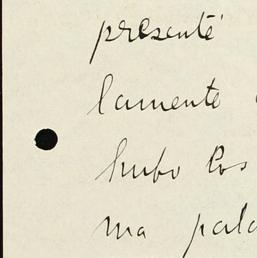 presenté
lamente
hubo los
ma pala